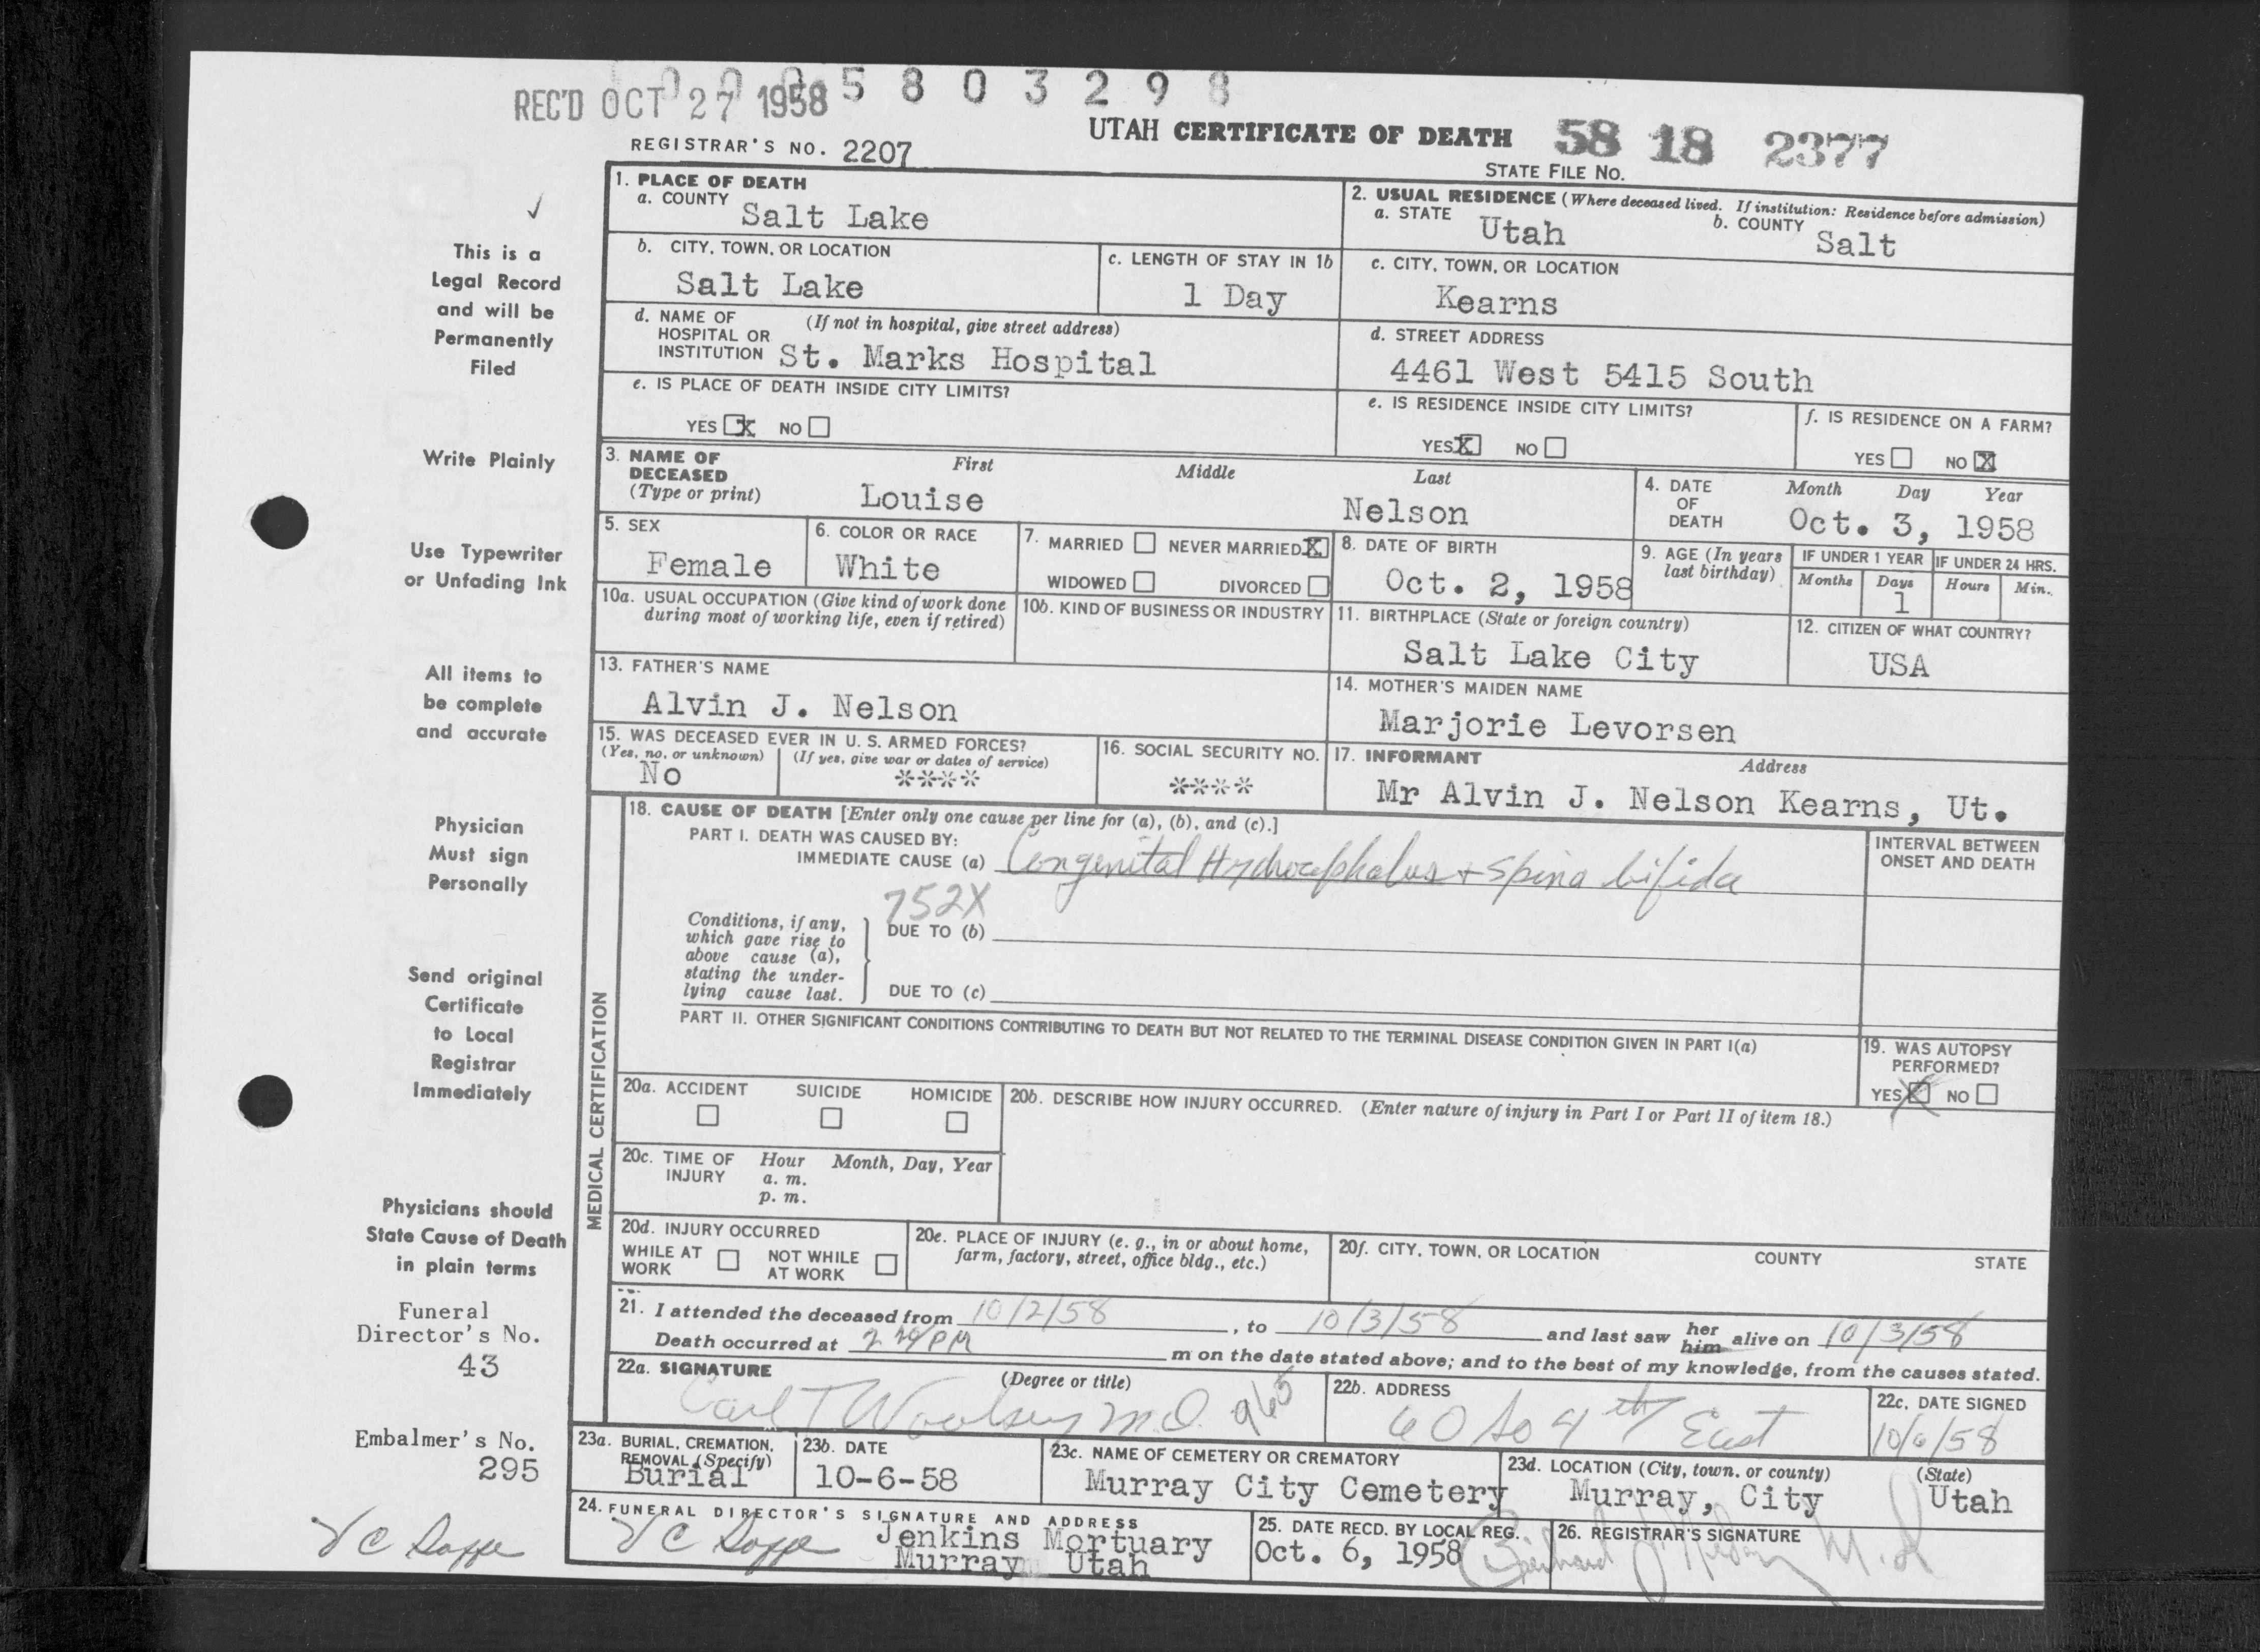 0 0 0 5 8 0 3 2 9 8
REC'D OCT 27 1958
UTAH CERTIFICATE OF DEATH 58 18 2377
REGISTRAR'S NO. 2207
STATE FILE NO.
1. PLACE OF DEATH
a. COUNTY Salt Lake
2. USUAL RESIDENCE (Where deceased lived. If institution: Residence before admission)
a. STATE Utah b. COUNTY Salt
b. CITY, TOWN, OR LOCATION Salt Lake
c. LENGTH OF STAY IN 1b 1 Day
c. CITY, TOWN, OR LOCATION Kearns
d. NAME OF HOSPITAL OR INSTITUTION (If not in hospital, give street address) St. Marks Hospital
d. STREET ADDRESS 4461 West 5415 South
e. IS PLACE OF DEATH INSIDE CITY LIMITS?
YES X NO
e. IS RESIDENCE INSIDE CITY LIMITS?
YES X NO
f. IS RESIDENCE ON A FARM?
YES NO X
3. NAME OF DECEASED (Type or print) First Middle Last
Louise Nelson
4. DATE OF DEATH Month Day Year
Oct. 3, 1958
5. SEX Female
6. COLOR OR RACE White
7. MARRIED NEVER MARRIED X
WIDOWED DIVORCED
8. DATE OF BIRTH Oct. 2, 1958
9. AGE (In years last birthday)
IF UNDER 1 YEAR Months Days 1
IF UNDER 24 HRS. Hours Min.
10a. USUAL OCCUPATION (Give kind of work done during most of working life, even if retired)
10b. KIND OF BUSINESS OR INDUSTRY
11. BIRTHPLACE (State or foreign country) Salt Lake City
12. CITIZEN OF WHAT COUNTRY? USA
13. FATHER'S NAME Alvin J. Nelson
14. MOTHER'S MAIDEN NAME Marjorie Levorsen
15. WAS DECEASED EVER IN U. S. ARMED FORCES?
(Yes, no, or unknown) No (If yes, give war or dates of service) ****
16. SOCIAL SECURITY NO. ****
17. INFORMANT Address
Mr Alvin J. Nelson Kearns, Ut.
MEDICAL CERTIFICATION
18. CAUSE OF DEATH [Enter only one cause per line for (a), (b), and (c).]
PART I. DEATH WAS CAUSED BY:
IMMEDIATE CAUSE (a) Congenital Hydrocephalus + Spina bifida
INTERVAL BETWEEN ONSET AND DEATH
752X
Conditions, if any, which gave rise to above cause (a), stating the underlying cause last.
DUE TO (b)
DUE TO (c)
PART II. OTHER SIGNIFICANT CONDITIONS CONTRIBUTING TO DEATH BUT NOT RELATED TO THE TERMINAL DISEASE CONDITION GIVEN IN PART I(a)
19. WAS AUTOPSY PERFORMED?
YES X NO
20a. ACCIDENT SUICIDE HOMICIDE
20b. DESCRIBE HOW INJURY OCCURRED. (Enter nature of injury in Part I or Part II of item 18.)
20c. TIME OF INJURY Hour Month, Day, Year
a. m.
p. m.
20d. INJURY OCCURRED
WHILE AT WORK NOT WHILE AT WORK
20e. PLACE OF INJURY (e. g., in or about home, farm, factory, street, office bldg., etc.)
20f. CITY, TOWN, OR LOCATION COUNTY STATE
21. I attended the deceased from 10/2/58, to 10/3/58 and last saw her him alive on 10/3/58
Death occurred at PM m on the date stated above; and to the best of my knowledge, from the causes stated.
22a. SIGNATURE (Degree or title)
Carl T Woolsey M.D. 965
22b. ADDRESS
60 So 4th East
22c. DATE SIGNED
10/6/58
23a. BURIAL, CREMATION, REMOVAL (Specify) Burial
23b. DATE 10-6-58
23c. NAME OF CEMETERY OR CREMATORY Murray City Cemetery
23d. LOCATION (City, town, or county) (State)
Murray, City Utah
24. FUNERAL DIRECTOR'S SIGNATURE AND ADDRESS
Jenkins Mortuary
Murray Utah
25. DATE RECD. BY LOCAL REG.
Oct. 6, 1958
26. REGISTRAR'S SIGNATURE
M.D.
This is a
Legal Record
and will be
Permanently
Filed
Write Plainly
Use Typewriter
or Unfading Ink
All items to
be complete
and accurate
Physician
Must sign
Personally
Send original
Certificate
to Local
Registrar
Immediately
Physicians should
State Cause of Death
in plain terms
Funeral
Director's No.
43
Embalmer's No.
295